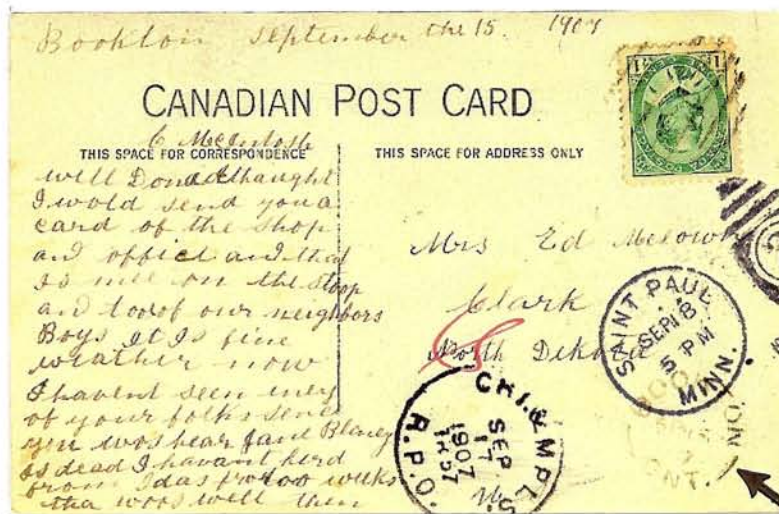 Bookton September the 15. 1907
CANADIAN POST CARD
THIS SPACE FOR CORRESPONDENCE
C McIntosh
well Dona I thaught
I wold send you a
card of the shop
and office and that
Is mee on the stoop
and too of our neighbors
Boys it Is fine
weather now
I havent seen eney
of your folks senc
you wos hear Jane Blaney
Is dead I havant herd
from Idas for too weeks
tha woos well then
THIS SPACE FOR ADDRESS ONLY
Mrs Ed
Clark
North Dekota
SAINT PAUL
SEP 18
5 PM
MINN.
CHI. & MPLS.
SEP
17
1907
R.P.O.
NO
ONT.